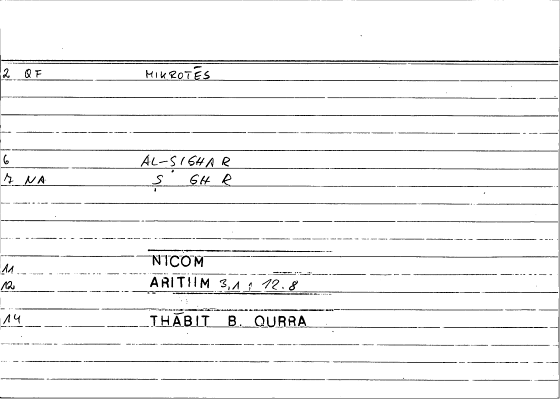 2 QF MIKROTĒS
6 AL-ṢIGHAR
7 NA Ṣ GH R
11 NICOM
12 ARITIIM 3,1 : 12.8
14 THĀBIT B. QURRA